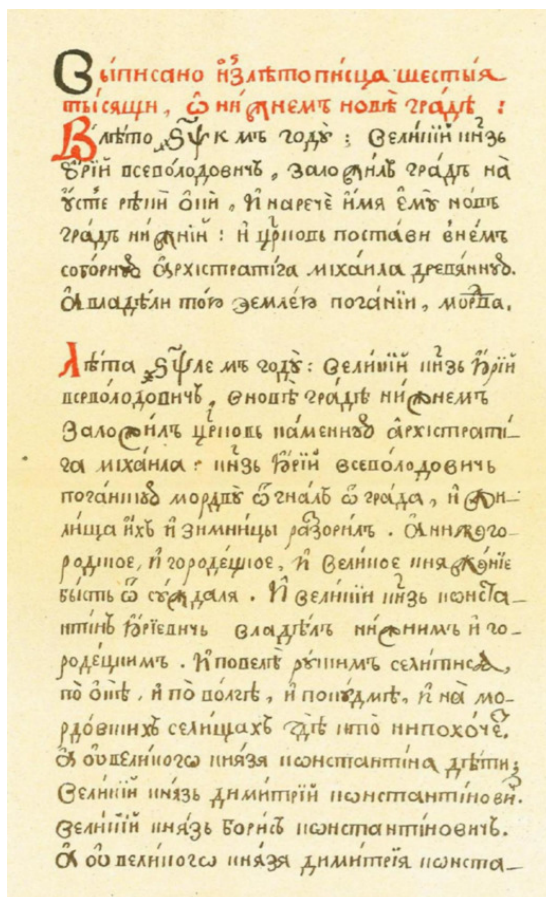 Выписано и҆з̾лѣтопи́сца шесты́я
ты́сящи, ѿ ни́жнемъ новѣ гра́дѣ :
В лѣ́то ҂ѕ҃ѱк мъ годꙋ̀ : Вели́кїй кн҃зь
Ю҆́рїй всеволодовичь, заложи́лъ гра́дъ на̀
ꙋ҆́стїе рѣкѝ ѻ҆кѝ, И҆ наречѐ и҆́мя є҆мꙋ̀ но́въ
гра́дъ ни́жнїй : и҆ цр҃ковь поста́ви вне́мъ
собо́рнꙋю а҆рхистрати́га михаи́ла древя́ннꙋю.
А҆ владѣ́ли то́ю землею пога́нїи, мо́рдва.

Лѣ́та ҂ѕ҃ѱле мъ годꙋ̀ : Вели́кїй кн҃зь Ю҆́рїй
всево́лодовичь, Вновѣ гра́дѣ ни́жнемъ
Заложи́лъ цр҃ковь ка́меннꙋю а҆рхистрати́-
га михаи́ла : кн҃зь Ю҆́рїй всево́лодовичь
пога́нꙋю мордвꙋ̀ ѿгна́лъ ѿ гра́да, и҆ жи-
ли́ща и҆́хъ и҆ зи́мницы разори́лъ. А҆ нижего-
ро́дцкое, и҆ городе́цкое, И҆ вели́кое княже́нїе
бы́сть ѿ сꙋ́ждаля. И҆ вели́кїи кн҃зь конста-
нти́нъ Ю҆́рїевичь владѣ́лъ ни́жнимъ и҆ го-
роде́цкимъ. И҆ повелѣ̀ рꙋ́скимъ сели́тися,
по̀ ѻ҆кѣ̀, и҆ по̀ во́лгѣ, и҆ по кꙋдмѣ̀, и҆ на̀ мо-
рдо́вскихъ сели́щахъ гдѣ̀ кто̀ ни похо́четъ.
А҆ ᲂу҆ вели́когѡ кня́зя константи́на дѣ́ти;
Вели́кїй кня́зь дими́трїй константи́новичь.
Вели́кїй кня́зь бори́съ константи́новичь.
А҆ ᲂу҆ вели́когѡ кня́зя дими́трїя конста-